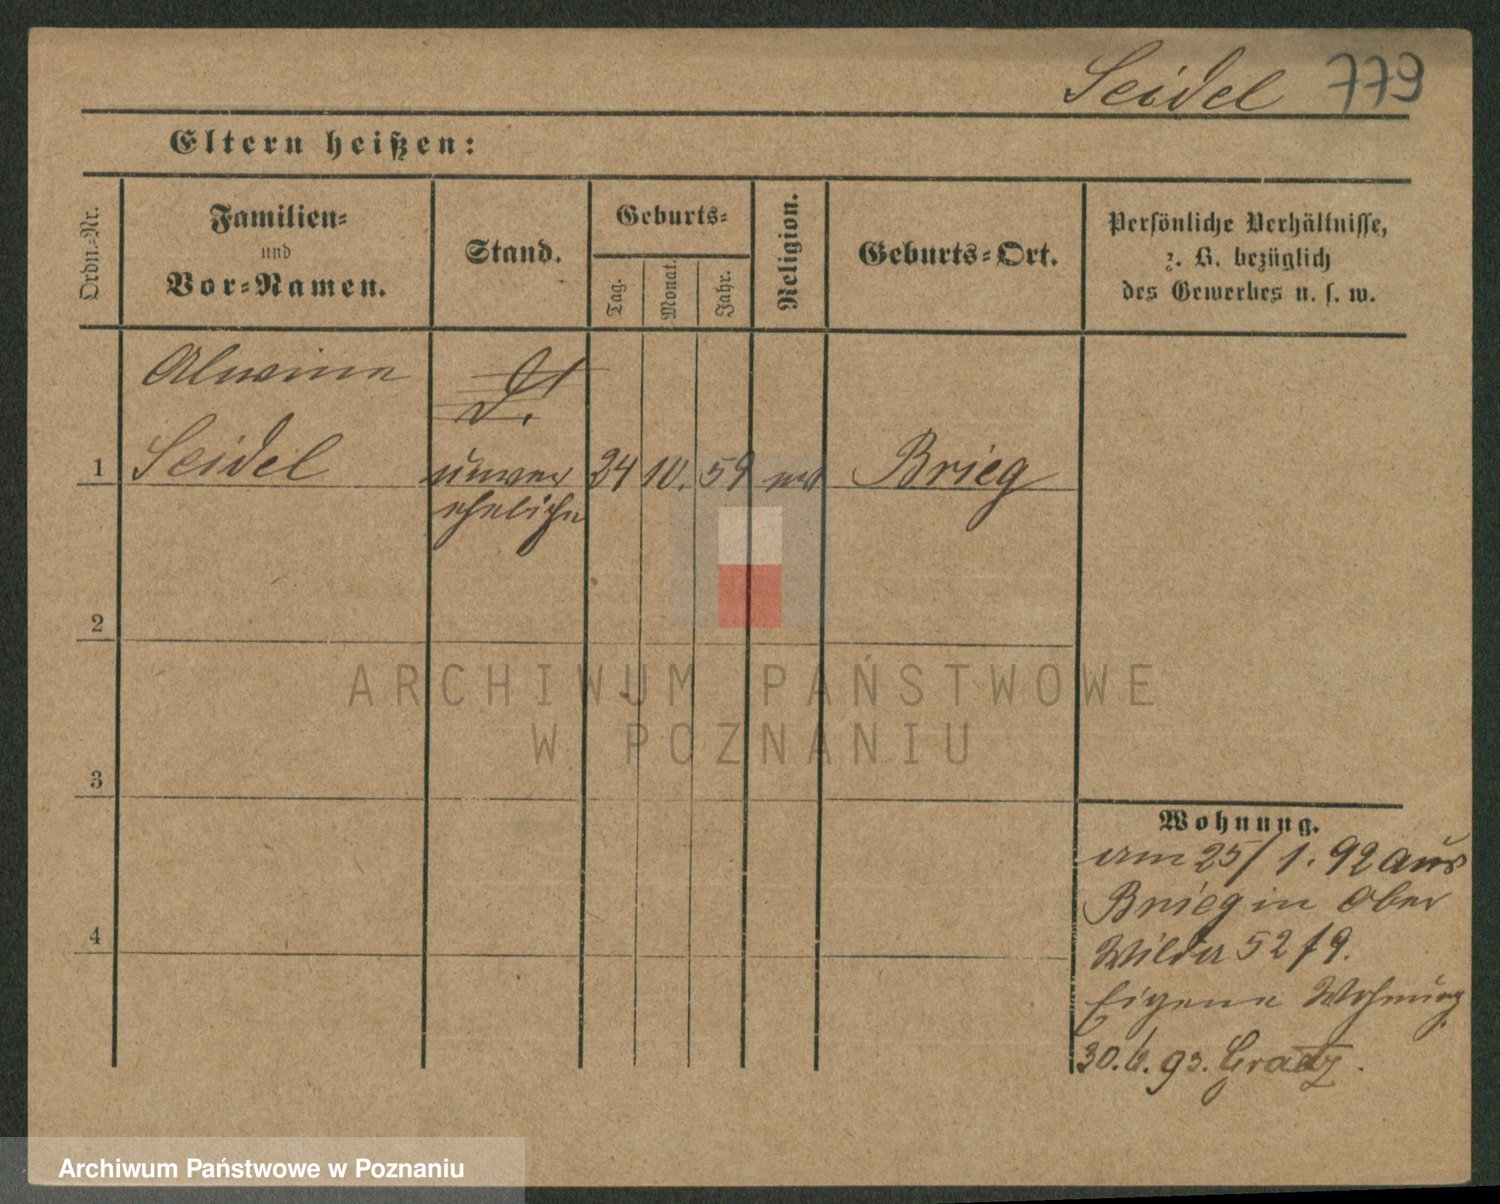 Seidel 779
Eltern heißen:
Ordn.-Nr.
Familien-
und
Vor-Namen.
Stand.
Geburts-
Tag.
Monat.
Jahr.
Religion.
Geburts-Ort.
Persönliche Verhältnisse,
z. B. bezüglich
des Gewerbes u. s. w.
Alwine
1 Seidel unver 24 10. 59 Brieg
eheliche
2
3
4
Wohnung.
am 25/1. 92 aus
Brieg in Ober
Wilda 52 f 9.
Eigene Wohnung
30.6.93. Graetz.
ARCHIWUM PAŃSTWOWE
W POZNANIU
Archiwum Państwowe w Poznaniu